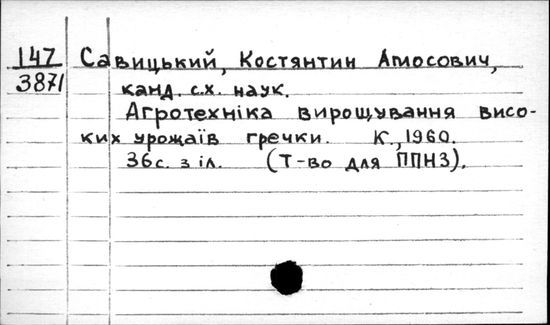 147 Савицький, Костянтин Амосович,
3871 канд. с.х. наук.
Агротехніка вирощування висо-
ких урожаїв гречки. К., 1960.
36с. з іл. (Т-во для ППНЗ).